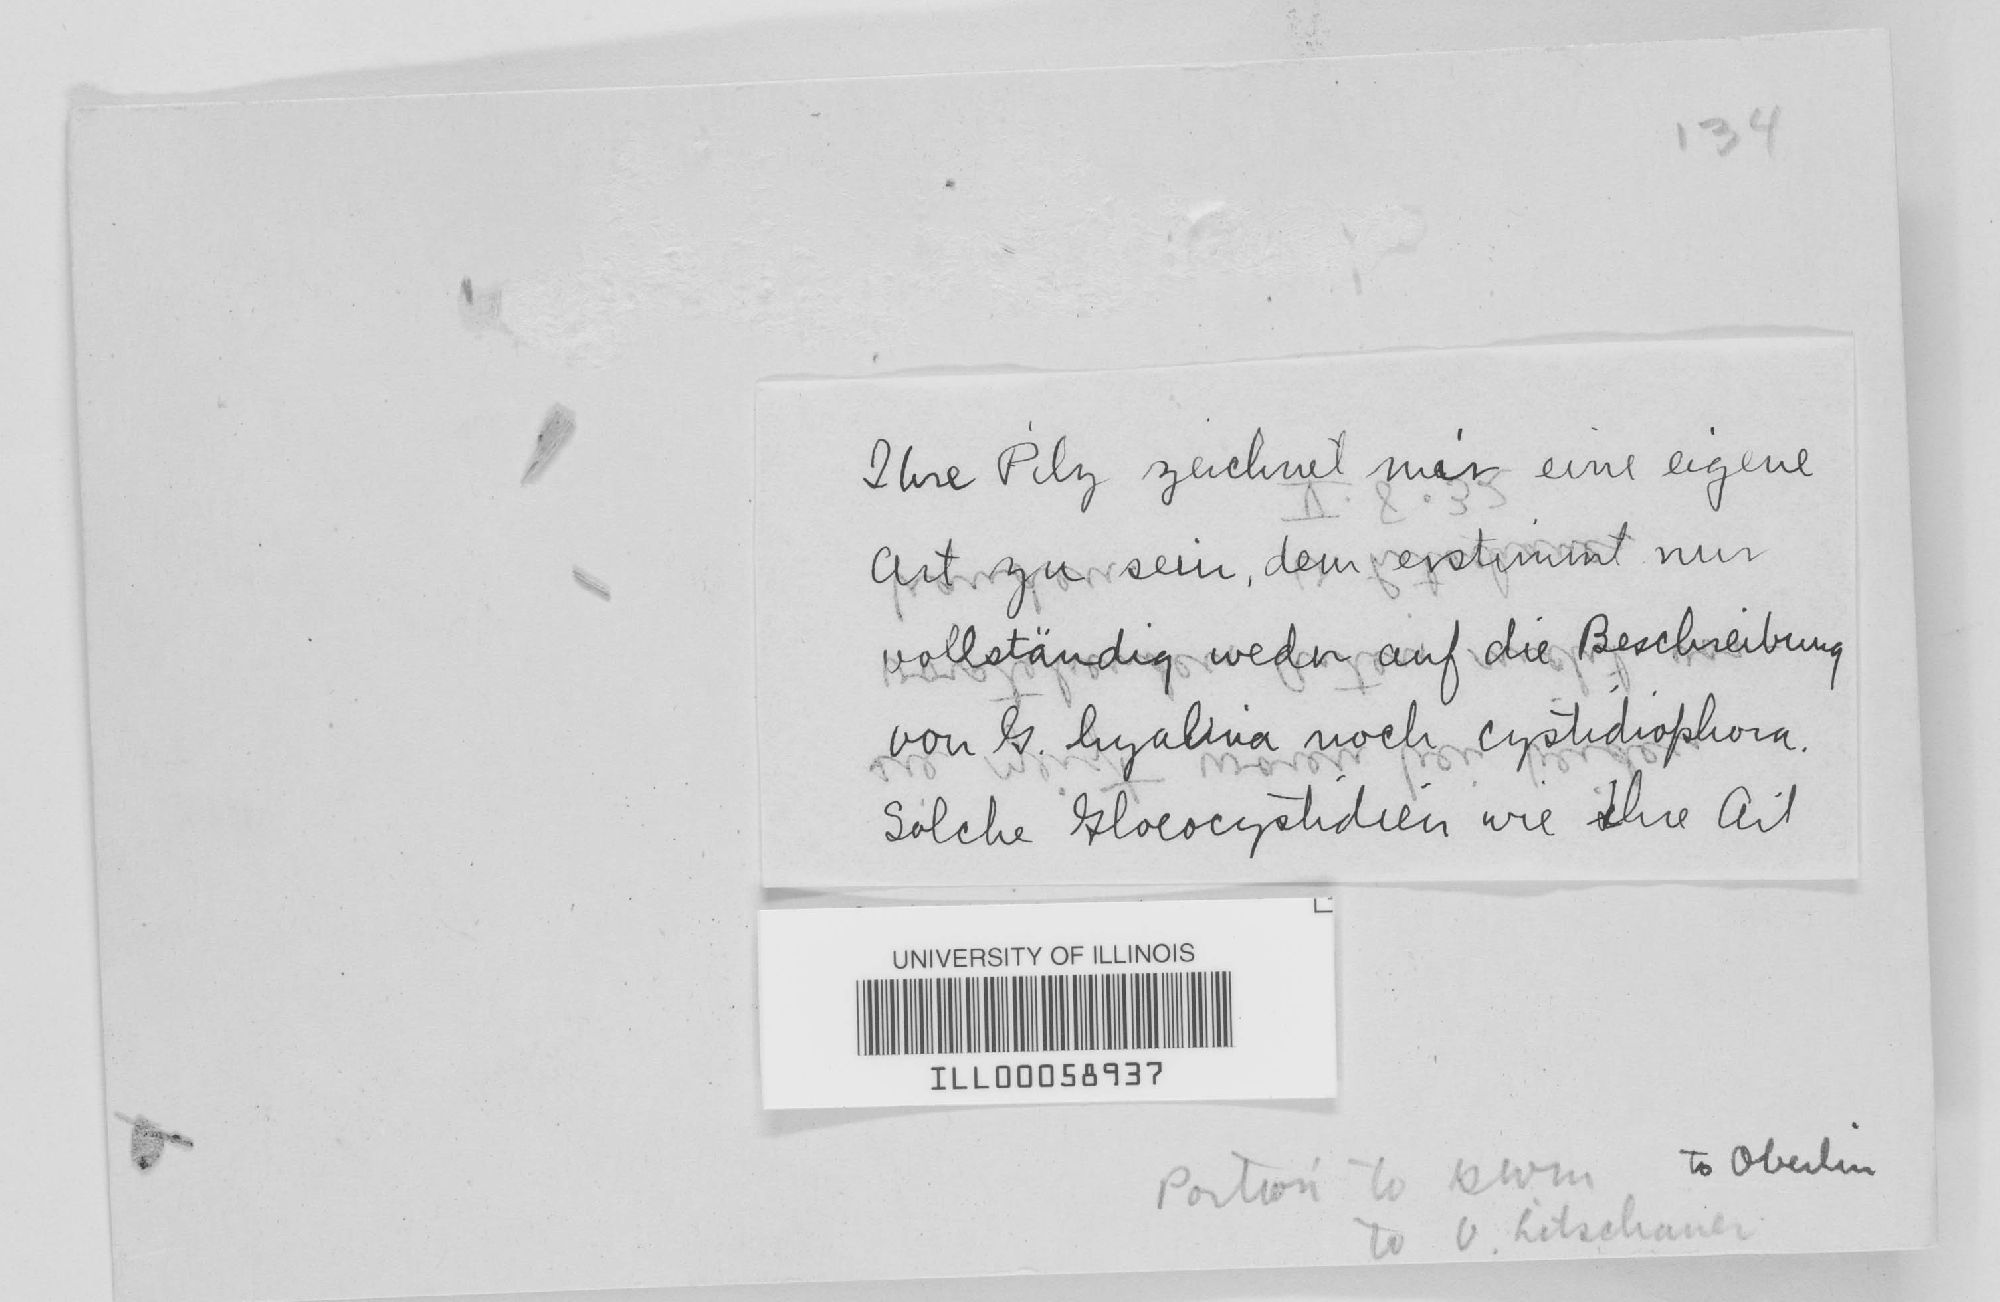 134
Ihre Pilz zeichnet mir eine eigene
Art zu sein, denn erstimmt nur
vollständig weder auf die Beschreibung
von G. hyalina noch cystidiophora.
Solche Gloeocystidien wie Ihre Art
UNIVERSITY OF ILLINOIS
ILL00058937
to Oberlin
Portion to
to V. Litschauer